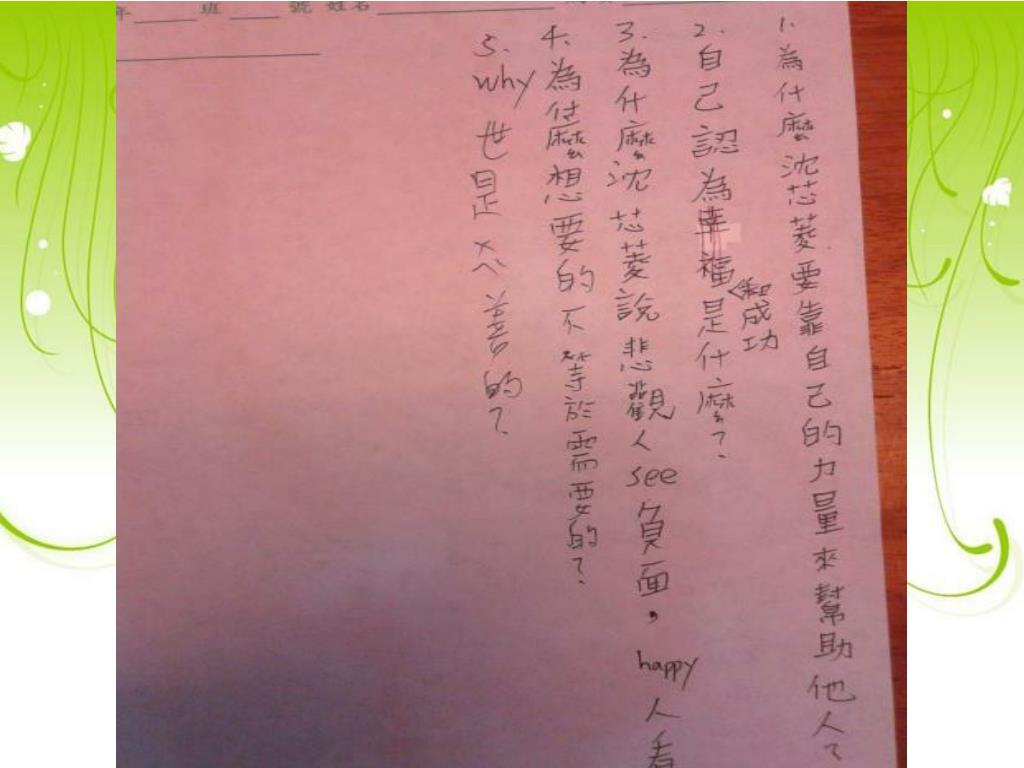 年 班 號 姓名
1. 為什麼沈芯菱要靠自己的力量來幫助他人？
2. 自己認為幸福和成功是什麼？
3. 為什麼沈芯菱說悲觀人see負面，happy人看
4. 為什麼想要的不等於需要的？
5. why 世是ㄨㄟˋ善的？